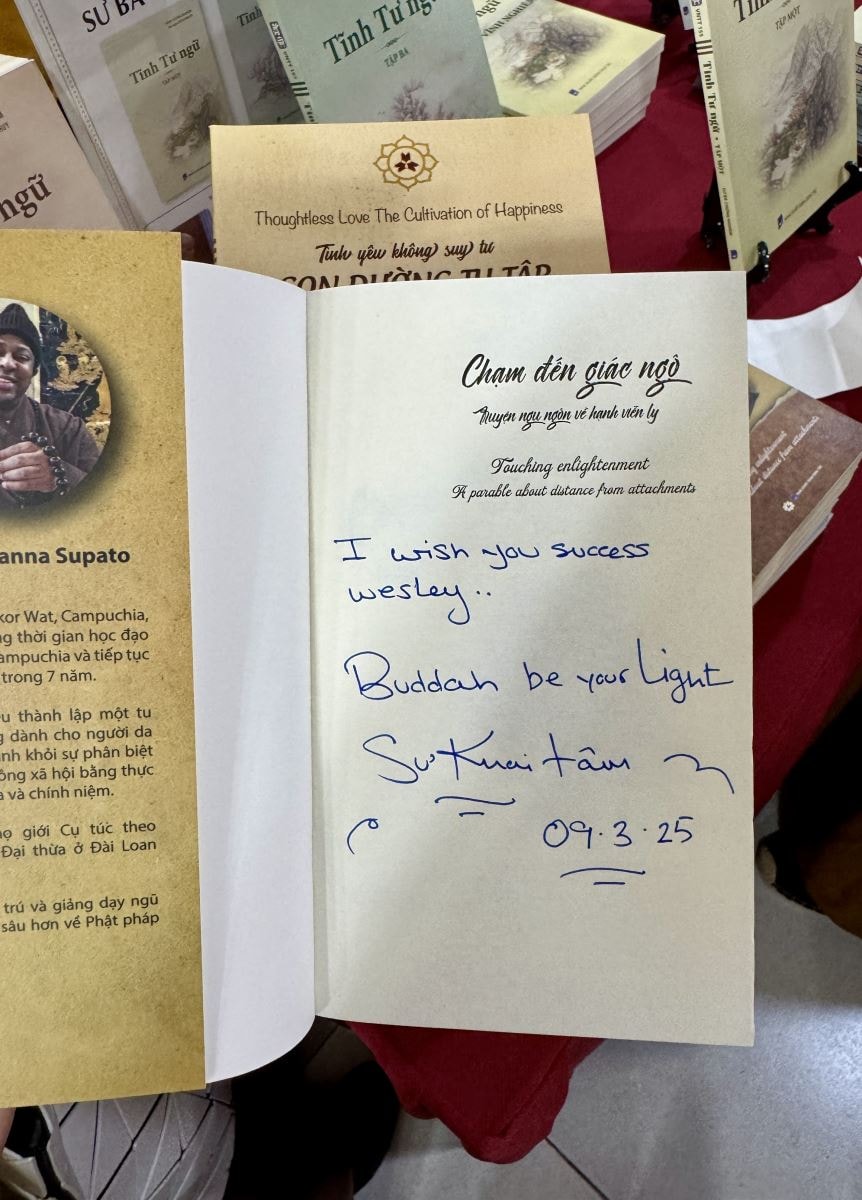 SƯ BÀ
Tĩnh Tư ngữ
TẬP MỘT
Tĩnh Tư ngữ
TẬP BA
Tĩnh Tư ngữ • TẬP MỘT
TẬP MỘT
ngữ
Thoughtless Love The Cultivation of Happiness
Tình yêu không suy tư
CON ĐƯỜNG TU TẬP
anna Supato
kor Wat, Campuchia,
g thời gian học đạo
ampuchia và tiếp tục
trong 7 năm.
u thành lập một tu
g dành cho người da
nh khỏi sự phân biệt
ông xã hội bằng thực
a và chính niệm.
họ giới Cụ túc theo
Đại thừa ở Đài Loan
trú và giảng dạy ngũ
sâu hơn về Phật pháp
Chạm đến giác ngộ
Truyện ngụ ngôn về hạnh viễn ly
Touching enlightenment
A parable about distance from attachments
I wish you success
wesley..
Buddah be your Light
Sư Khai tâm
09.3.25